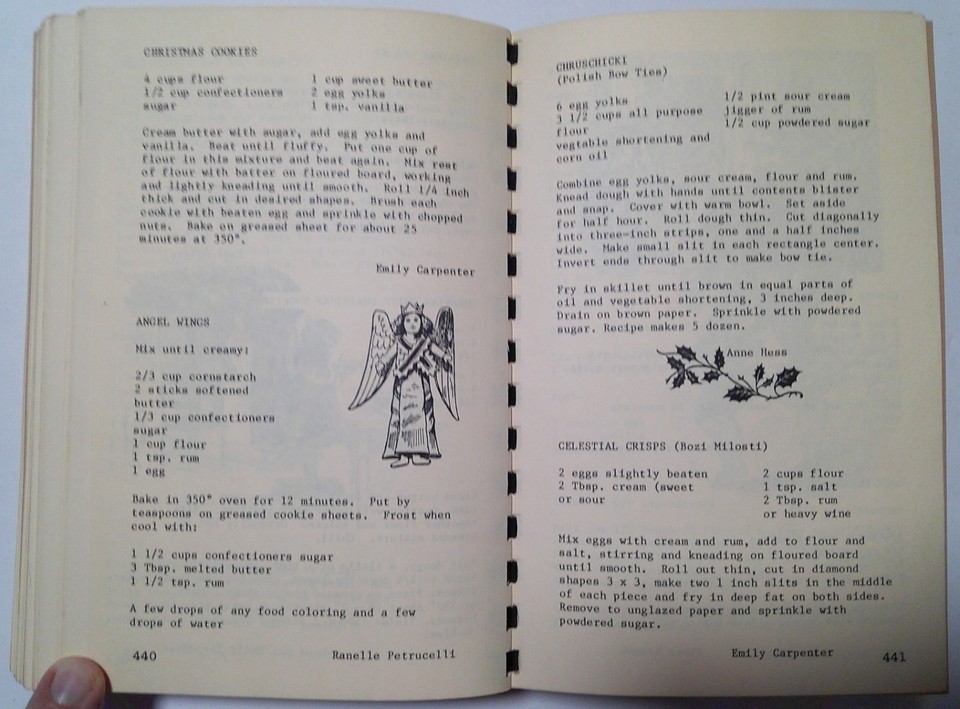 CHRISTMAS COOKIES
4 cups flour
1/2 cup confectioners
sugar
1 cup sweet butter
2 egg yolks
1 tsp. vanilla
Cream butter with sugar, add egg yolks and
vanilla. Beat until fluffy. Put one cup of
flour in this mixture and beat again. Mix rest
of flour with batter on floured board, working
and lightly kneading until smooth. Roll 1/4 inch
thick and cut in desired shapes. Brush each
cookie with beaten egg and sprinkle with chopped
nuts. Bake on greased sheet for about 25
minutes at 350°.
Emily Carpenter
ANGEL WINGS
Mix until creamy:
2/3 cup cornstarch
2 sticks softened
butter
1/3 cup confectioners
sugar
1 cup flour
1 tsp. rum
1 egg
Bake in 350° oven for 12 minutes. Put by
teaspoons on greased cookie sheets. Frost when
cool with:
1 1/2 cups confectioners sugar
3 Tbsp. melted butter
1 1/2 tsp. rum
A few drops of any food coloring and a few
drops of water
440
Ranelle Petrucelli
CHRUSCHICKI
(Polish Bow Ties)
6 egg yolks
3 1/2 cups all purpose
flour
vegtable shortening and
corn oil
1/2 pint sour cream
jigger of rum
1/2 cup powdered sugar
Combine egg yolks, sour cream, flour and rum.
Knead dough with hands until contents blister
and snap. Cover with warm bowl. Set aside
for half hour. Roll dough thin. Cut diagonally
into three-inch strips, one and a half inches
wide. Make small slit in each rectangle center.
Invert ends through slit to make bow tie.
Fry in skillet until brown in equal parts of
oil and vegetable shortening, 3 inches deep.
Drain on brown paper. Sprinkle with powdered
sugar. Recipe makes 5 dozen.
Anne Hess
CELESTIAL CRISPS (Bozi Milosti)
2 eggs slightly beaten
2 Tbsp. cream (sweet
or sour
2 cups flour
1 tsp. salt
2 Tbsp. rum
or heavy wine
Mix eggs with cream and rum, add to flour and
salt, stirring and kneading on floured board
until smooth. Roll out thin, cut in diamond
shapes 3 x 3, make two 1 inch slits in the middle
of each piece and fry in deep fat on both sides.
Remove to unglazed paper and sprinkle with
powdered sugar.
Emily Carpenter
441